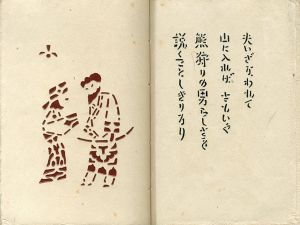 夫いざなわれて
山に入れば
熊狩りの男らしさを
説くことしきりなり